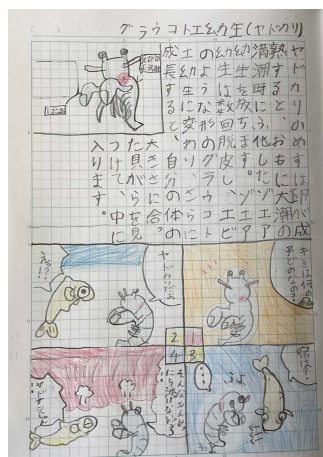 グラウコトエ幼生(ヤドカリ)
ヤドカリのめすは卵が成
熟すると、おもに大潮の
満潮時にふ化したゾエア
幼生を放します。ゾエア
幼生は数回脱皮し、エビ
のような形のグラウコト
エ幼生に変わり、さらに
成長すると、自分の体の
大きさに合っ
た貝がらを見
つけて、中に
入ります。
1
2
3
4
キミは何の
子どもなの?
ヤドカリだよ
えっ!?
宿は?